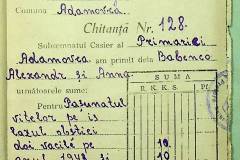 Comuna Adamovca
Chitanță Nr. 128.
Subsemnatul Casier al Primariei
Adamovca am primit dela Babenco
Alexandr și Anna
următoarele sume:
SUMA
R. K. K. S.
Pentru Pașunatul
vitelor pe is
lazul obștiei
doi vacile pe 10
10